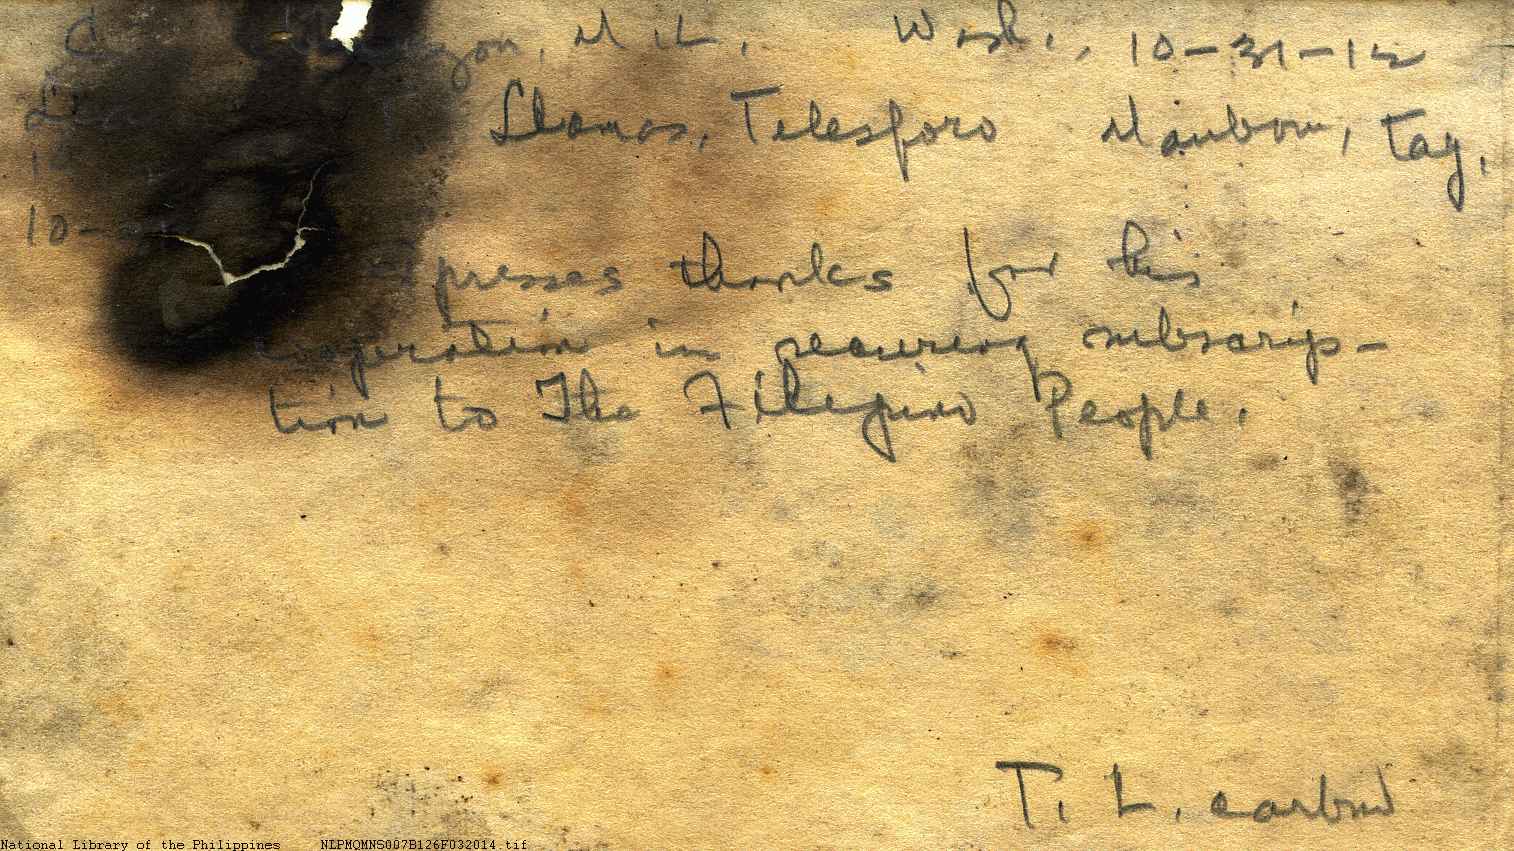 C Quezon, M. L. Wash., 10-31-12
Ll Llamas, Telesforo Maubon, Tay.
10-
expresses thanks for his
cooperation in securing subscrip-
tion to The Filipino People.
T. L. carbnd
National Library of the Philippines NLPMQMNS007B126F032014.tif